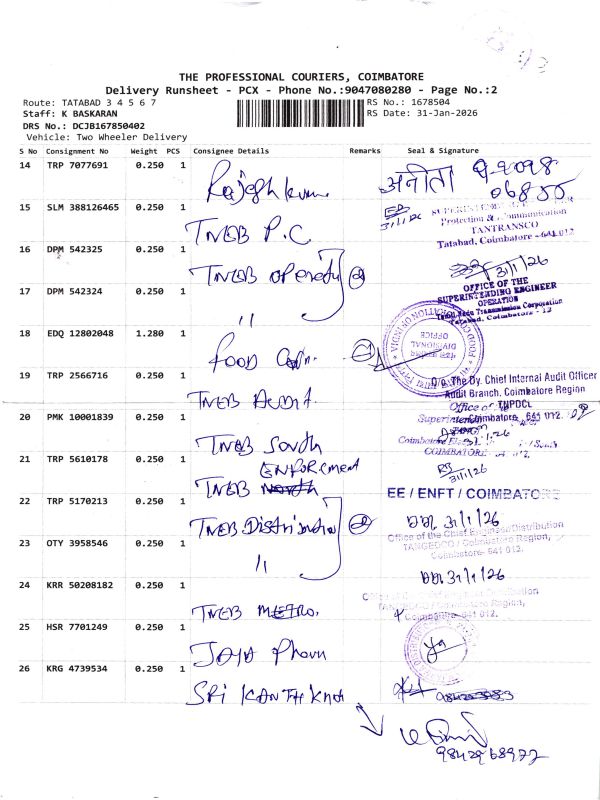 THE PROFESSIONAL COURIERS, COIMBATORE
Delivery Runsheet - PCX - Phone No.:9047080280 - Page No.:2
Route: TATABAD 3 4 5 6 7
RS No.: 1678504
Staff: K BASKARAN
RS Date: 31-Jan-2026
DRS No.: DCJB167850402
Vehicle: Two Wheeler Delivery
S No Consignment No Weight PCS Consignee Details Remarks Seal & Signature
14 TRP 7077691 0.250 1
Rajeshkum अनीता
15 SLM 388126465 0.250 1
TNEB P.C 31/1/26
Protection & Communication
TANTRANSCO
Tatabad, Coimbatore - 641 012
16 DPM 542325 0.250 1
TNEB Operation 2 31/1/26
17 DPM 542324 0.250 1
"
OFFICE OF THE
SUPERINTENDING ENGINEER
OPERATION
Tamil Nadu Transmission Corporation
Tatabad, Coimbatore - 12
18 EDQ 12802048 1.280 1
Food
FOOD CORPORATION OF INDIA
DIVISIONAL OFFICE
19 TRP 2566716 0.250 1
TNEB Audit
O/o The Dy. Chief Internal Audit Officer
Audit Branch, Coimbatore Region
TNPDCL
Coimbatore 641 012.
20 PMK 10001839 0.250 1
TNEB South
Office of
COIMBATORE
21 TRP 5610178 0.250 1
ENFORCEMENT
TNEB
31/1/26
EE / ENFT / COIMBATORE
22 TRP 5170213 0.250 1
TNEB Distribution 2 31/1/26
Office of the Chief Engineer/Distribution
TANGEDCO / Coimbatore Region,
Coimbatore- 641 012.
23 OTY 3958546 0.250 1
"
31/1/26
24 KRR 50208182 0.250 1
TNEB METRO.
Coimbatore Region,
641 012.
25 HSR 7701249 0.250 1
26 KRG 4739534 0.250 1
SRI
9842968977